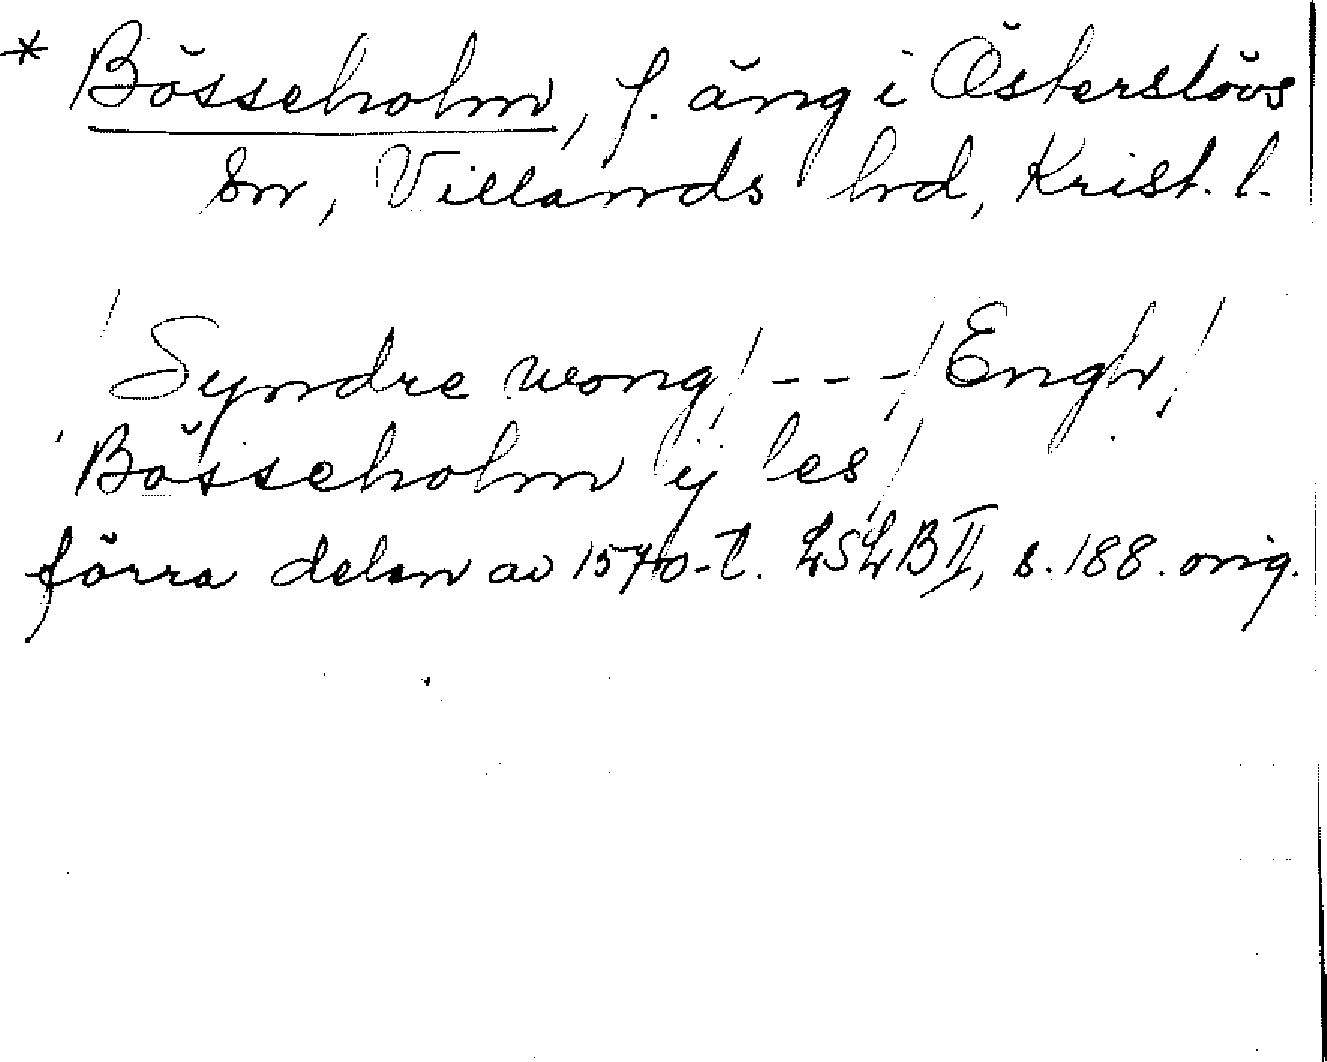 * Bösseholm, f. äng i Österslövs
sn, Villands hrd, Krist. l.
/ Syndre wong / - - - / Eng /
Bösseholm ij les /
förra delen av 1570-t. LSLB II, s. 188. orig.